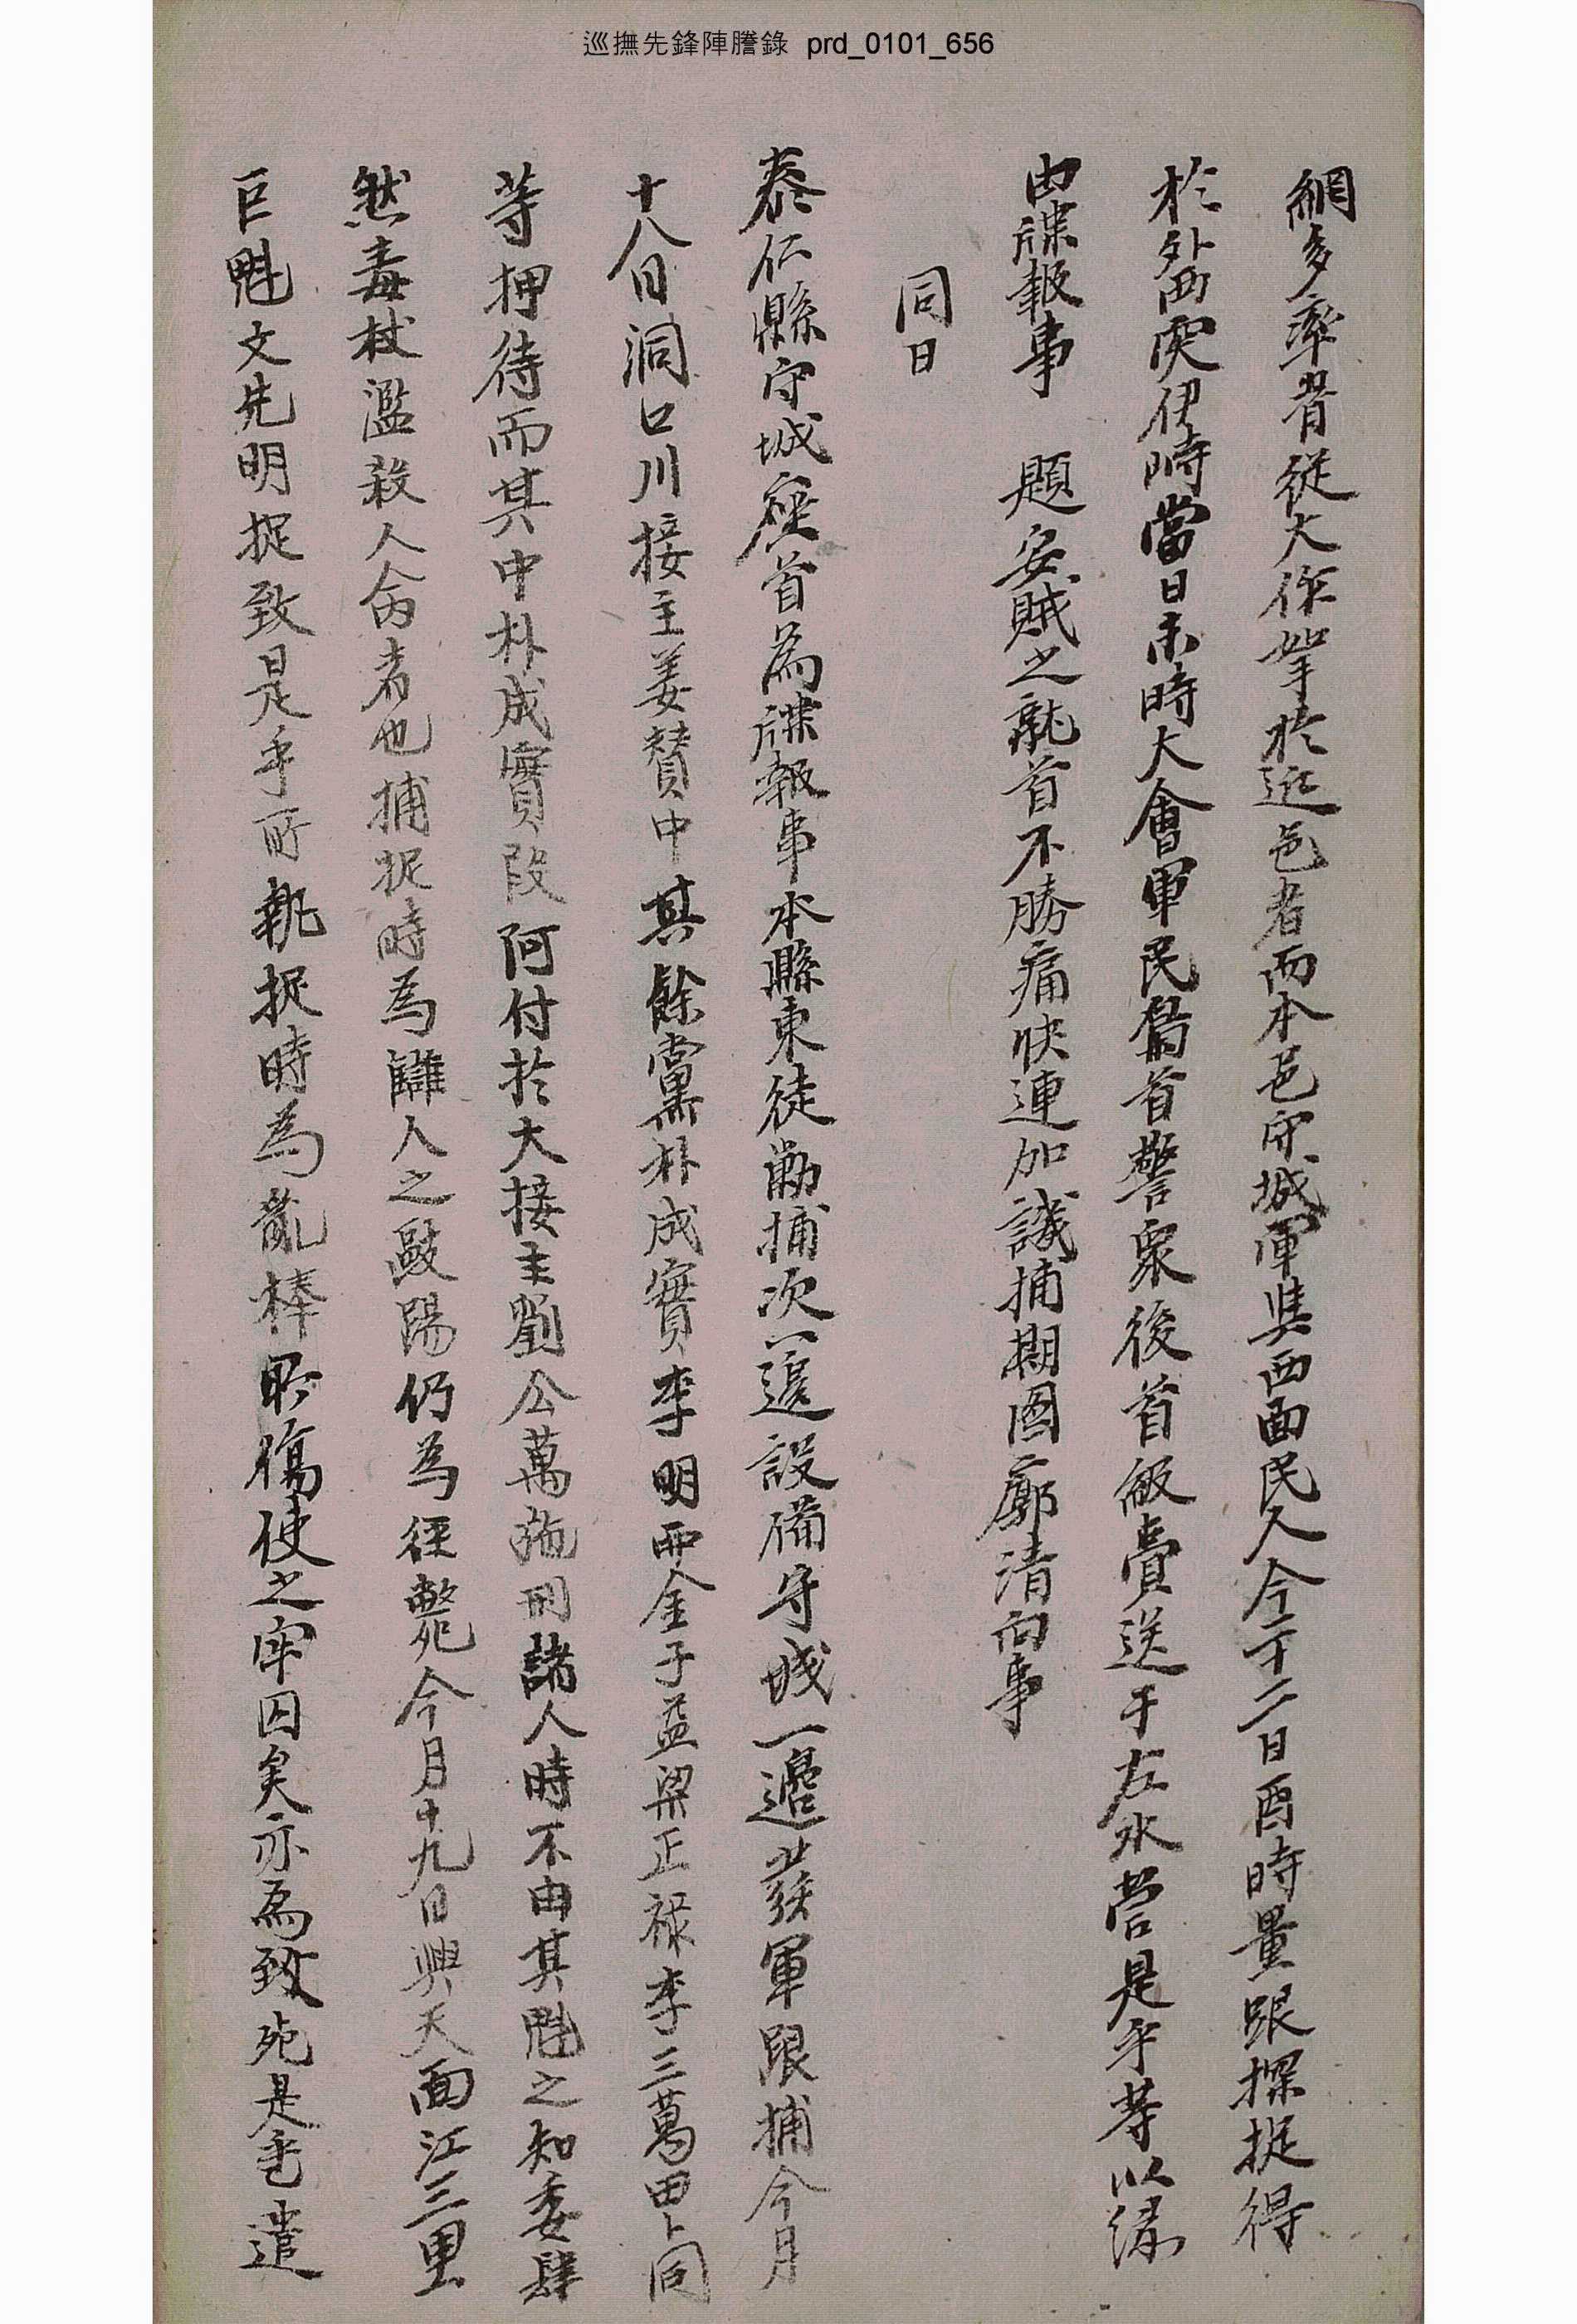 巡撫先鋒陣謄錄 prd_0101_656
網多率脅從大作挐於近邑者而本邑守城軍與西面民人今二十二日酉時量跟探捉得
於外西面突伊時當日未時大會軍民梟首警衆後首級賫送于左水營是乎等以緣
由牒報事 題安賊之就首不勝痛快連加譏捕期圖廓清向事
同日
泰仁縣守城座首爲牒報事本縣東徒勦捕次一邊設備守城一邊發軍跟捕今月
十八日洞口川接主姜贊中其餘黨朴成實李明西金子益梁正祿李三萬田卜同
等押待而其中朴成實段阿付於大接主劉公萬施刑諸人時不由其魁之知委肆
然毒杖濫殺人命者也捕捉時爲讎人之毆踢仍爲徑斃今月十九日興天面江三里
巨魁文先明捉致是乎所執捉時爲亂棒所傷使之牢囚矣亦爲致死是乎遣